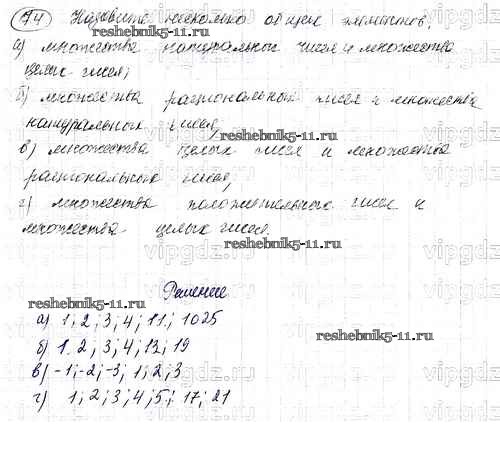 74 Назовите несколько общих элементов:
а) множества натуральных чисел и множества
целых чисел;
б) множества рациональных чисел и множества
натуральных чисел;
reshebnik5-11.ru
в) множества целых чисел и множества
рациональных чисел;
г) множества положительных чисел и
множества целых чисел.
reshebnik5-11.ru
Решение
reshebnik5-11.ru
а) 1; 2; 3; 4; 11; 1025
reshebnik5-11.ru
б) 1. 2; 3; 4; 13; 19
в) -1; -2; -3; 1; 2; 3
г) 1; 2; 3; 4; 5; 17; 21
vipgdz.ru